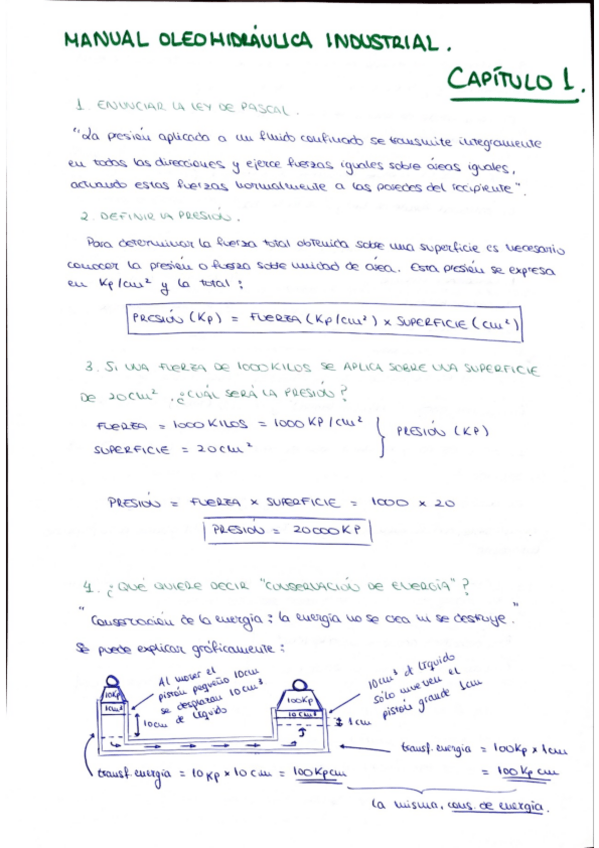 MANUAL OLEOHIDRÁULICA INDUSTRIAL.
CAPÍTULO 1.
1. ENUNCIAR LA LEY DE PASCAL.
"La presión aplicada a un fluido confinado se transmite íntegramente
en todas las direcciones y ejerce fuerzas iguales sobre áreas iguales,
actuando estas fuerzas normalmente a las paredes del recipiente".
2. DEFINIR LA PRESIÓN.
Para determinar la fuerza total obtenida sobre una superficie es necesario
conocer la presión o fuerza sobre unidad de área. Esta presión se expresa
en Kp/cm² y la total:
PRESIÓN (Kp) = FUERZA (Kp/cm²) x SUPERFICIE (cm²)
3. SI UNA FUERZA DE 1000 KILOS SE APLICA SOBRE UNA SUPERFICIE
DE 20cm². ¿CUÁL SERÁ LA PRESIÓN?
FUERZA = 1000 KILOS = 1000 KP/cm²
SUPERFICIE = 20cm²
PRESIÓN (KP)
PRESIÓN = FUERZA x SUPERFICIE = 1000 x 20
PRESIÓN = 20000 KP
4. ¿QUÉ QUIERE DECIR "CONSERVACIÓN DE ENERGÍA"?
"Conservación de la energía: la energía no se crea ni se destruye."
Se puede explicar gráficamente:
Al mover el
pistón pequeño 10cm
se desplazan 10cm³
de líquido
10Kp
1cm²
10cm
100Kp
10cm²
1cm
10cm³ de líquido
sólo mueven el
pistón grande 1cm
transf. energía = 100Kp x 1cm
= 100 Kp cm
transf. energía = 10 Kp x 10 cm = 100 Kpcm
la misma, cons. de energía.